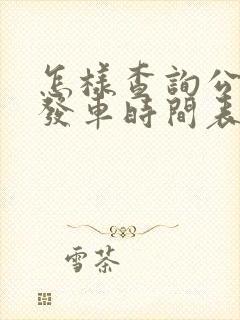 怎樣查詢公
發車時間表
雪茶